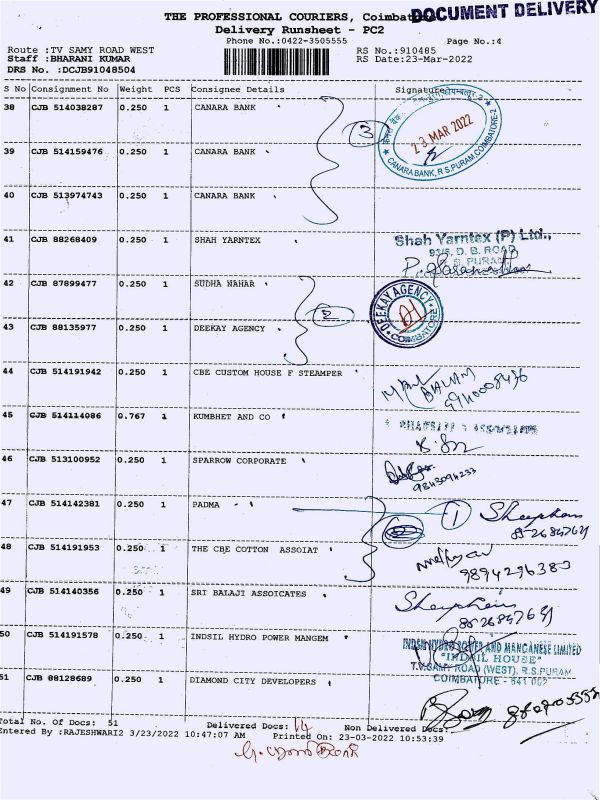 DOCUMENT DELIVERY
THE PROFESSIONAL COURIERS, Coimbatore
Delivery Runsheet - PC2
Phone No.:0422-3505555 Page No.:4
Route :TV SAMY ROAD WEST RS No.:910485
Staff :BHARANI KUMAR RS Date:23-Mar-2022
DRS No. :DCJB91048504
S No Consignment No Weight PCS Consignee Details Signature
38 CJB 514038287 0.250 1 CANARA BANK
3
23 MAR 2022
CANARA BANK, R.S.PURAM, COIMBATORE-2
39 CJB 514159476 0.250 1 CANARA BANK
40 CJB 513974743 0.250 1 CANARA BANK
41 CJB 88268409 0.250 1 SHAH YARNTEX
Shah Yarntex (P) Ltd.,
93/6, D. B. ROAD
R. S. PURAM
42 CJB 87899477 0.250 1 SUDHA NAHAR
2
DEEKAY AGENCY
COIMBATORE
43 CJB 88135977 0.250 1 DEEKAY AGENCY
44 CJB 514191942 0.250 1 CBE CUSTOM HOUSE F STEAMPER
45 CJB 514114086 0.767 1 KUMBHET AND CO
46 CJB 513100952 0.250 1 SPARROW CORPORATE
9843094233
47 CJB 514142381 0.250 1 PADMA
1
48 CJB 514191953 0.250 1 THE CBE COTTON ASSOIAT
9894296380
49 CJB 514140356 0.250 1 SRI BALAJI ASSOICATES
50 CJB 514191578 0.250 1 INDSIL HYDRO POWER MANGEM
INDSIL HYDRO POWER AND MANGANESE LIMITED
"INDSIL HOUSE"
T.V.SAMY ROAD (WEST), R.S.PURAM
COIMBATORE - 641 002
51 CJB 88128689 0.250 1 DIAMOND CITY DEVELOPERS
Total No. Of Docs: 51 Delivered Docs: 14 Non Delivered Docs:
Entered By :RAJESHWARI2 3/23/2022 10:47:07 AM Printed On: 23-03-2022 10:53:39